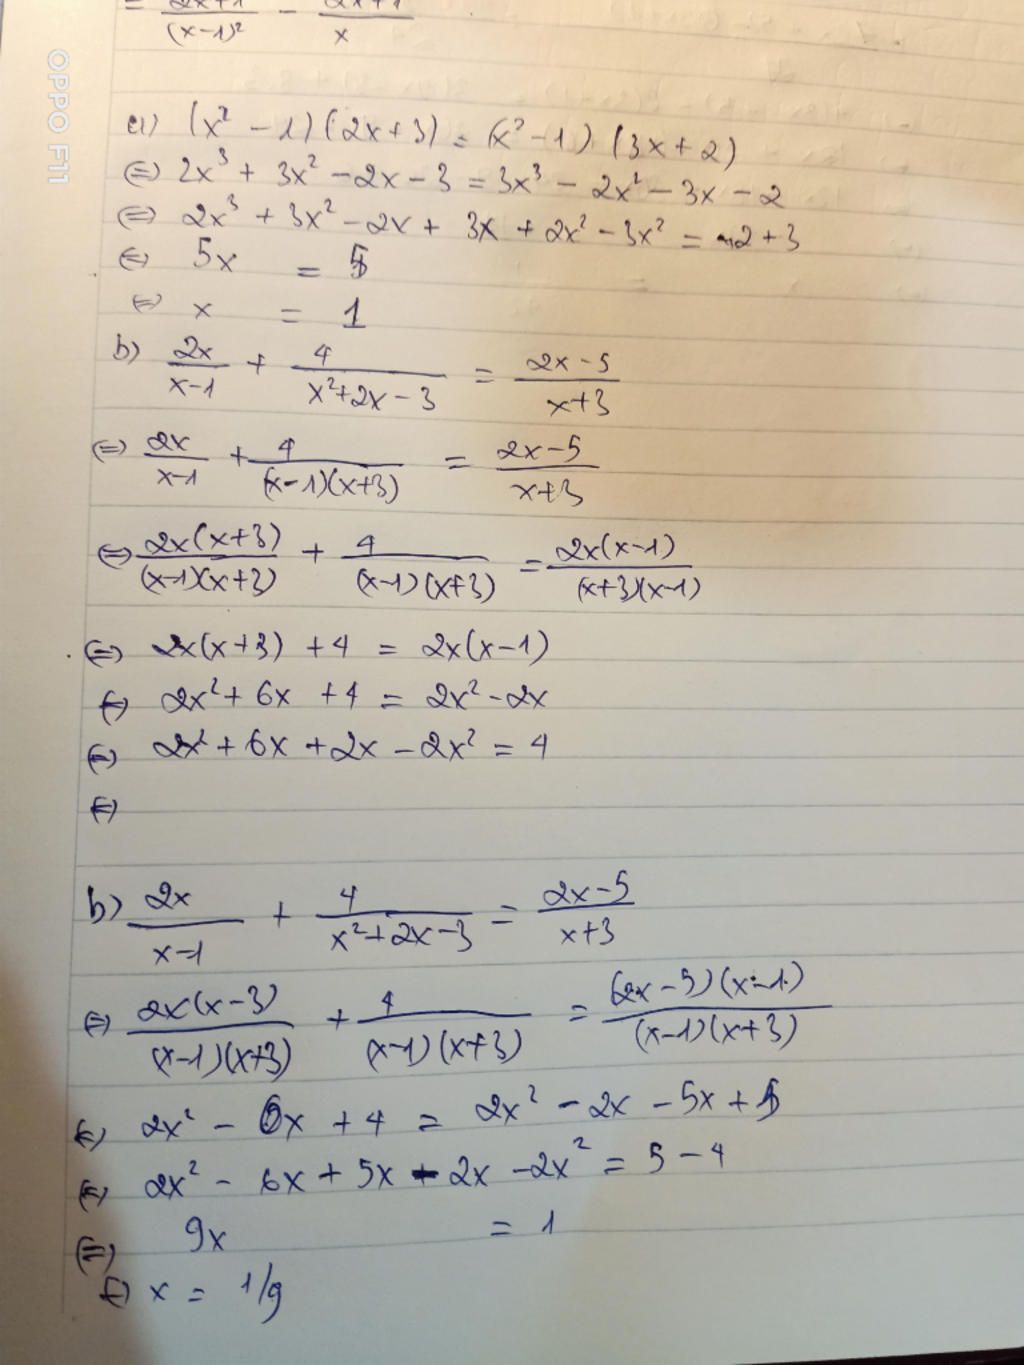 = 2x+1/(x-1)² - 2x+1/x
OPPO F11
a) (x² - 1)(2x+3) = (x² - 1)(3x+2)
(=) 2x³ + 3x² - 2x - 3 = 3x³ - 2x² - 3x - 2
(=) 2x³ + 3x² - 2x + 3x + 2x² - 3x² = -2+3
(=) 5x = 5
(=) x = 1
b) 2x/x-1 + 4/x²+2x-3 = 2x-5/x+3
(=) 2x/x-1 + 4/(x-1)(x+3) = 2x-5/x+3
(=) 2x(x+3)/(x-1)(x+3) + 4/(x-1)(x+3) = 2x(x-1)/(x+3)(x-1)
(=) 2x(x+3) + 4 = 2x(x-1)
(=) 2x² + 6x + 4 = 2x² - 2x
(=) 2x² + 6x + 2x - 2x² = 4
(=)
b) 2x/x-1 + 4/x²+2x-3 = 2x-5/x+3
(=) 2x(x-3)/(x-1)(x+3) + 4/(x-1)(x+3) = (2x-5)(x-1)/(x-1)(x+3)
(=) 2x² - 6x + 4 = 2x² - 2x - 5x + 5
(=) 2x² - 6x + 5x + 2x - 2x² = 5 - 4
(=) 9x = 1
(=) x = 1/9